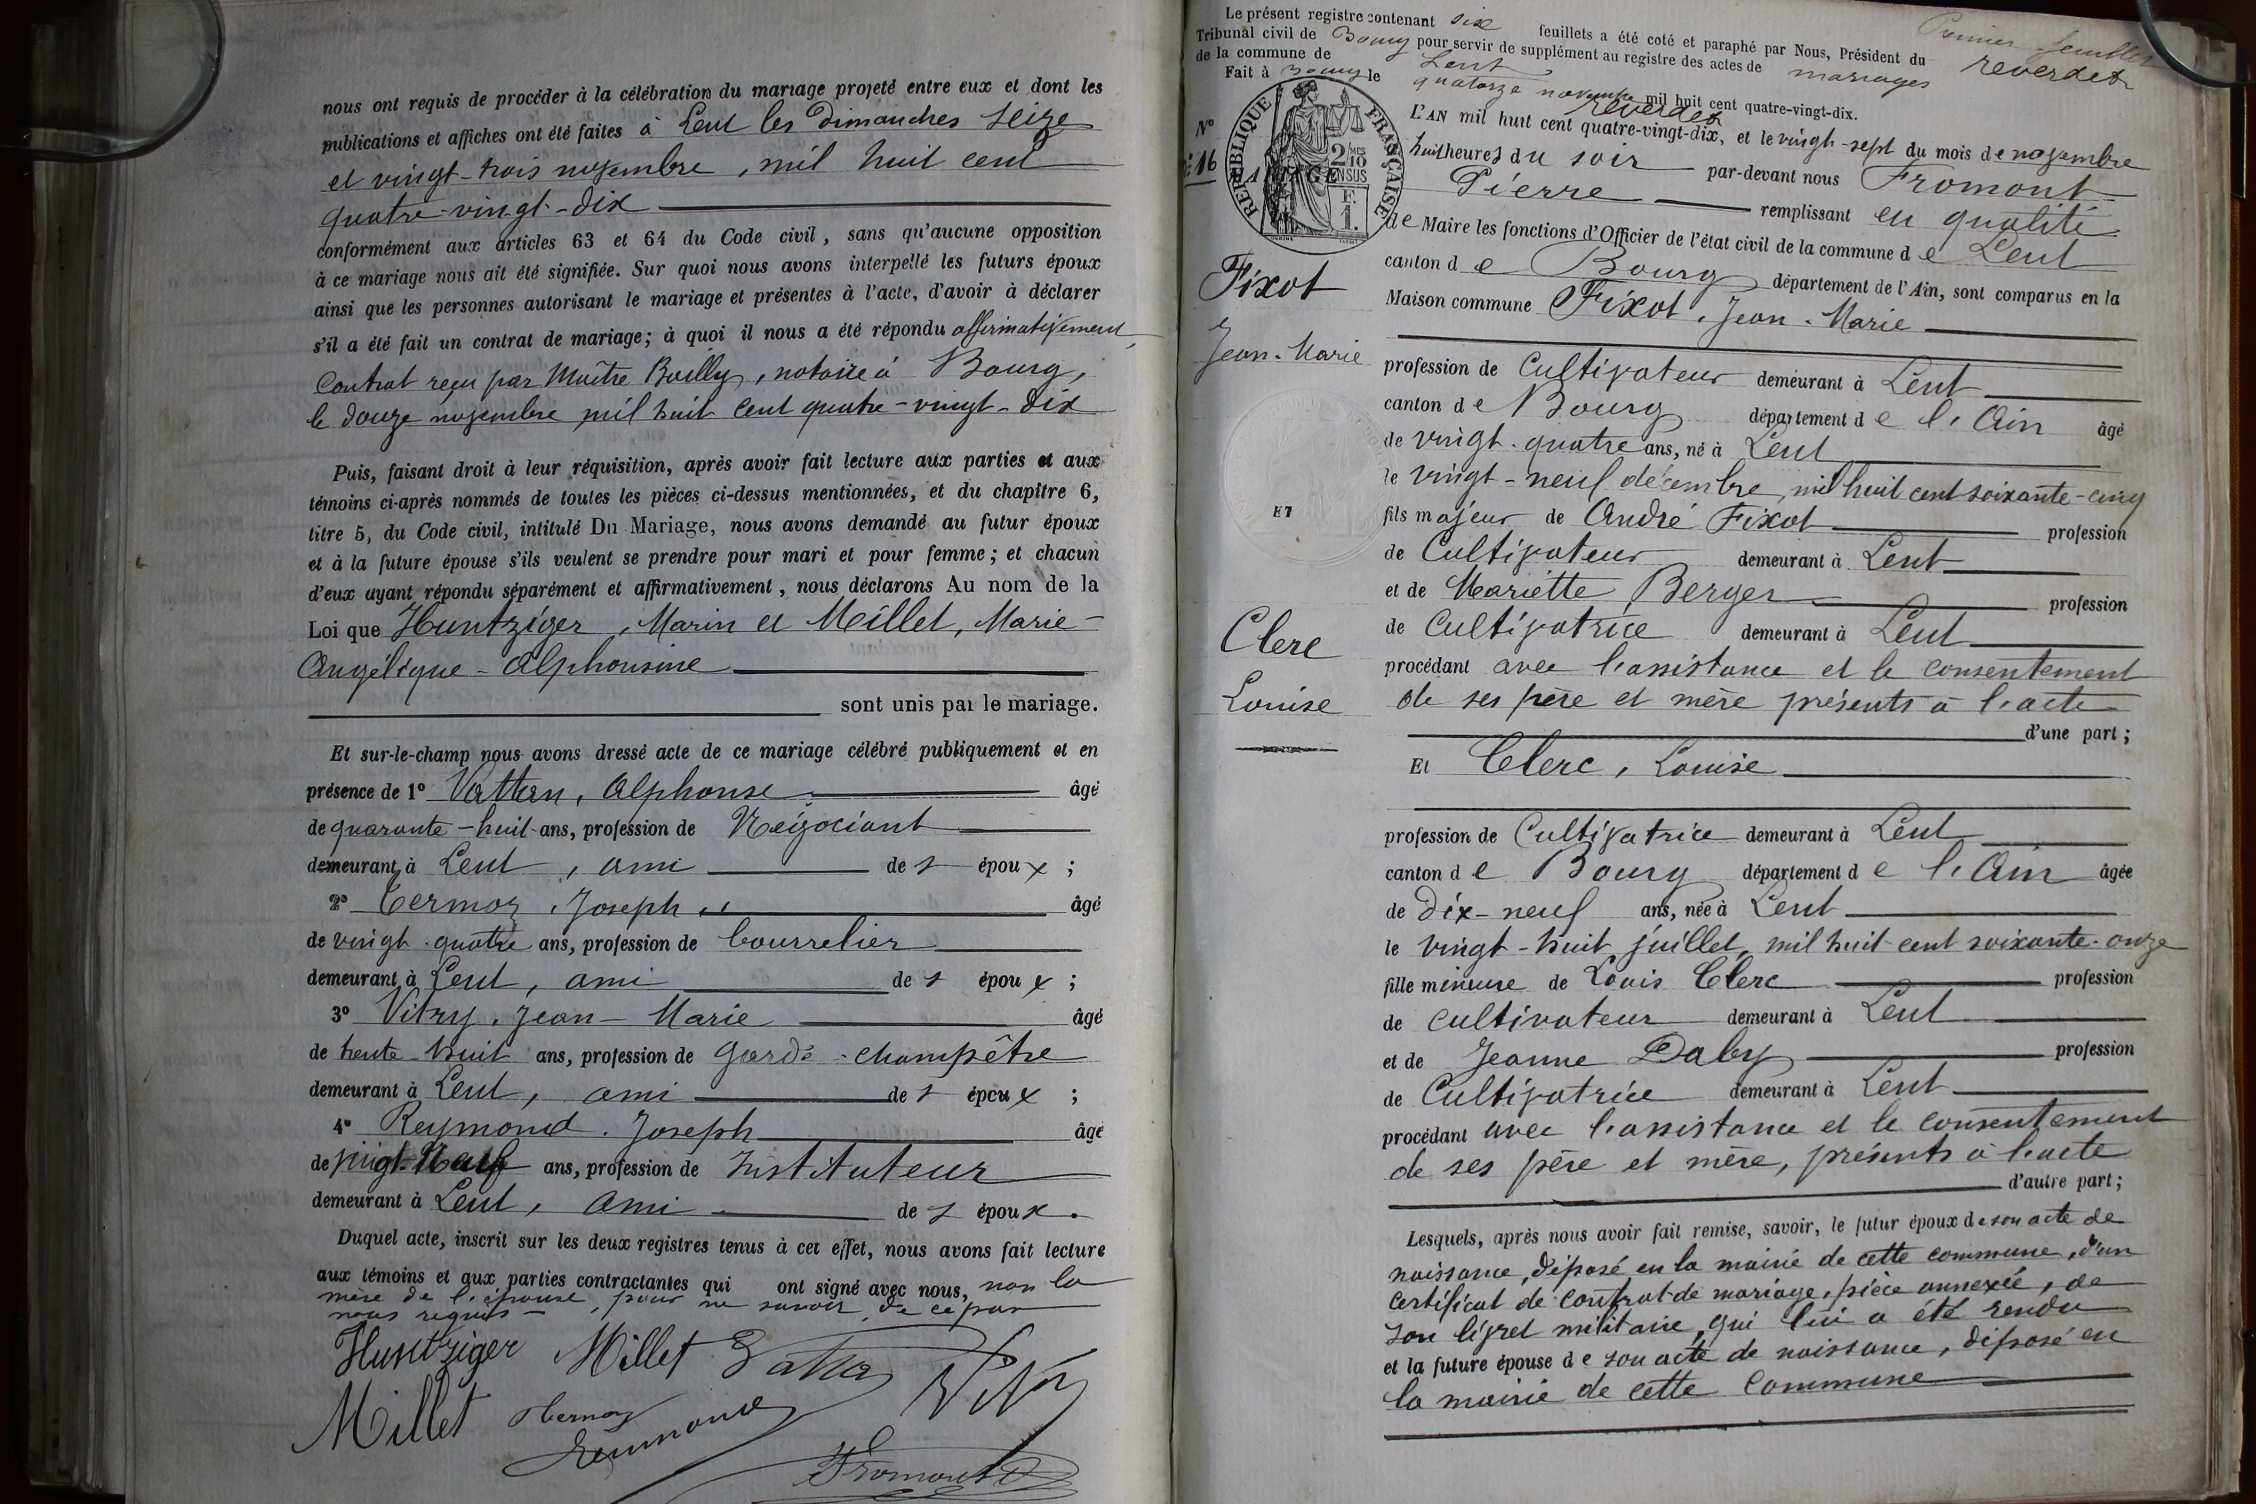 nous ont requis de procéder à la célébration du mariage projeté entre eux et dont les
publications et affiches ont été faites à Lent les Dimanches Seize
et vingt-trois novembre, mil huit cent
quatre-vingt-dix
conformément aux articles 63 et 64 du Code civil, sans qu'aucune opposition
à ce mariage nous ait été signifiée. Sur quoi nous avons interpellé les futurs époux
ainsi que les personnes autorisant le mariage et présentes à l'acte, d'avoir à déclarer
s'il a été fait un contrat de mariage; à quoi il nous a été répondu affirmativement,
Contrat reçu par Maître Bailly, notaire à Bourg,
le douze novembre mil huit cent quatre-vingt-dix
Puis, faisant droit à leur réquisition, après avoir fait lecture aux parties et aux
témoins ci-après nommés de toutes les pièces ci-dessus mentionnées, et du chapitre 6,
titre 5, du Code civil, intitulé Du Mariage, nous avons demandé au futur époux
et à la future épouse s'ils veulent se prendre pour mari et pour femme; et chacun
d'eux ayant répondu séparément et affirmativement, nous déclarons Au nom de la
Loi que Huntziger, Marin et Millet, Marie-
Angélique-Alphonsine
sont unis par le mariage.
Et sur-le-champ nous avons dressé acte de ce mariage célébré publiquement et en
présence de 1° Vattan, Alphonse âgé
de quarante-huit ans, profession de Négociant
demeurant à Lent, ami de s époux;
2° Cermoz, Joseph âgé
de vingt-quatre ans, profession de bourrelier
demeurant à Lent, ami de s époux;
3° Vitry, Jean-Marie âgé
de trente-huit ans, profession de Garde-champêtre
demeurant à Lent, ami de s époux;
4° Reymond, Joseph âgé
de vingt-neuf ans, profession de Instituteur
demeurant à Lent, ami de s époux.
Duquel acte, inscrit sur les deux registres tenus à cet effet, nous avons fait lecture
aux témoins et aux parties contractantes qui ont signé avec nous, non la
mère de l'épouse, pour ne savoir, de ce par
nous requis
Huntziger Millet Vattan Vitry
Millet Reymond
Fromont
Le présent registre contenant six feuillets a été coté et paraphé par Nous, Président du
Premier feuillet
Tribunal civil de Bourg pour servir de supplément au registre des actes de mariages
reverdet
de la commune de Lent
Fait à Bourg le quatorze novembre mil huit cent quatre-vingt-dix.
reverdet
N° 16
RÉPUBLIQUE FRANÇAISE
2/10 EN SUS
F. 1.
L'AN mil huit cent quatre-vingt-dix, et le vingt-sept du mois de novembre
huit heures du soir par-devant nous Fromont
Pierre remplissant en qualité
de Maire les fonctions d'Officier de l'état civil de la commune de Lent
canton de Bourg département de l'Ain, sont comparus en la
Maison commune Fixot, Jean-Marie
Fixot
Jean-Marie
profession de Cultivateur demeurant à Lent
canton de Bourg département de l'Ain âgé
de vingt-quatre ans, né à Lent
le vingt-neuf décembre, mil huit cent soixante-cinq
fils majeur de André Fixot profession
de Cultivateur demeurant à Lent
et de Mariette Berger profession
de Cultivatrice demeurant à Lent
procédant avec l'assistance et le consentement
de ses père et mère présents à l'acte
d'une part;
Clerc
Louise
Et Clerc, Louise
profession de Cultivatrice demeurant à Lent
canton de Bourg département de l'Ain âgée
de Dix-neuf ans, née à Lent
le vingt-huit juillet, mil huit cent soixante-onze
fille mineure de Louis Clerc profession
de cultivateur demeurant à Lent
et de Jeanne Daby profession
de Cultivatrice demeurant à Lent
procédant avec l'assistance et le consentement
de ses père et mère, présents à l'acte
d'autre part;
Lesquels, après nous avoir fait remise, savoir, le futur époux de son acte de
naissance, déposé en la mairie de cette commune, d'un
certificat de contrat de mariage, pièce annexée, de
son livret militaire, qui lui a été rendu
et la future épouse de son acte de naissance, déposé en
la mairie de cette commune